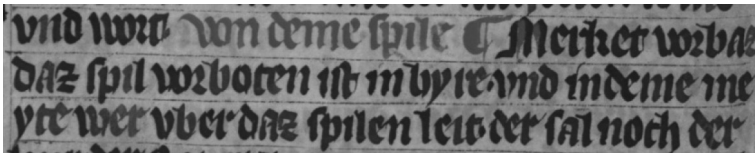 vnd wort von deme spile ¶ Merket vorbaz
daz spil vorboten ist in byre vnd in deme me
yte wer vber daz spilen leit der sal noch der